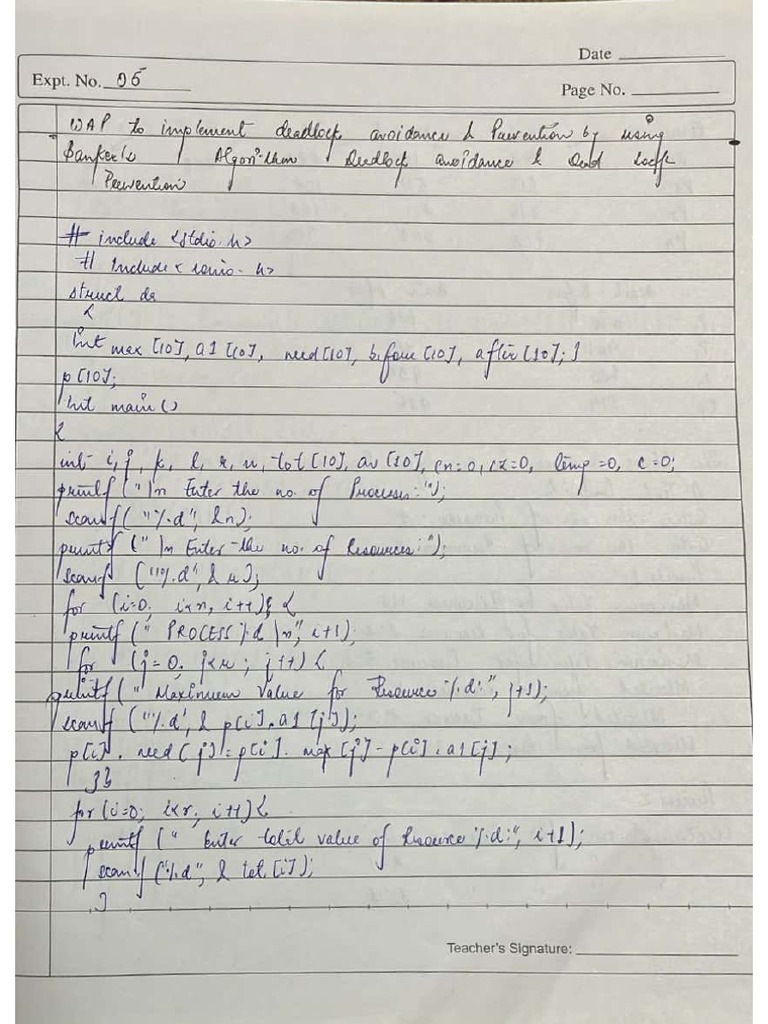 Date
Expt. No. 05
Page No.
WAP to implement deadlock avoidance & Prevention by using
Banker's Algorithm Deadlock avoidance & Dead lock
Prevention
# include <stdio.h>
# Include < conio. h>
struct da
{
int max [10], a1 [10], need [10], before [10], after [10]; }
p[10];
int main ()
{
int i, j, k, l, r, n, tot [10], av [10], cn=0, cz=0, temp =0, c=0;
printf (" \n Enter the no. of Processes:");
scanf( "%d", &n);
printf (" \n Enter the no. of Resources:");
scanf ("%d", & r);
for (i=0; i<n, i++) {
printf (" PROCESS %d \n", i+1);
for (j=0; j<r ; j++) {
printf (" Maximum Value for Resource %d:", j+1);
scanf ("%d', & p[i].a1 [j]);
p[i]. need (j) = p[i]. max [j] - p[i].a1[j];
}}
for (i=0; i<r; i++) {
printf (" Enter total value of Resource %d:", i+1);
scanf ("%d", & tot [i]);
}
Teacher's Signature: